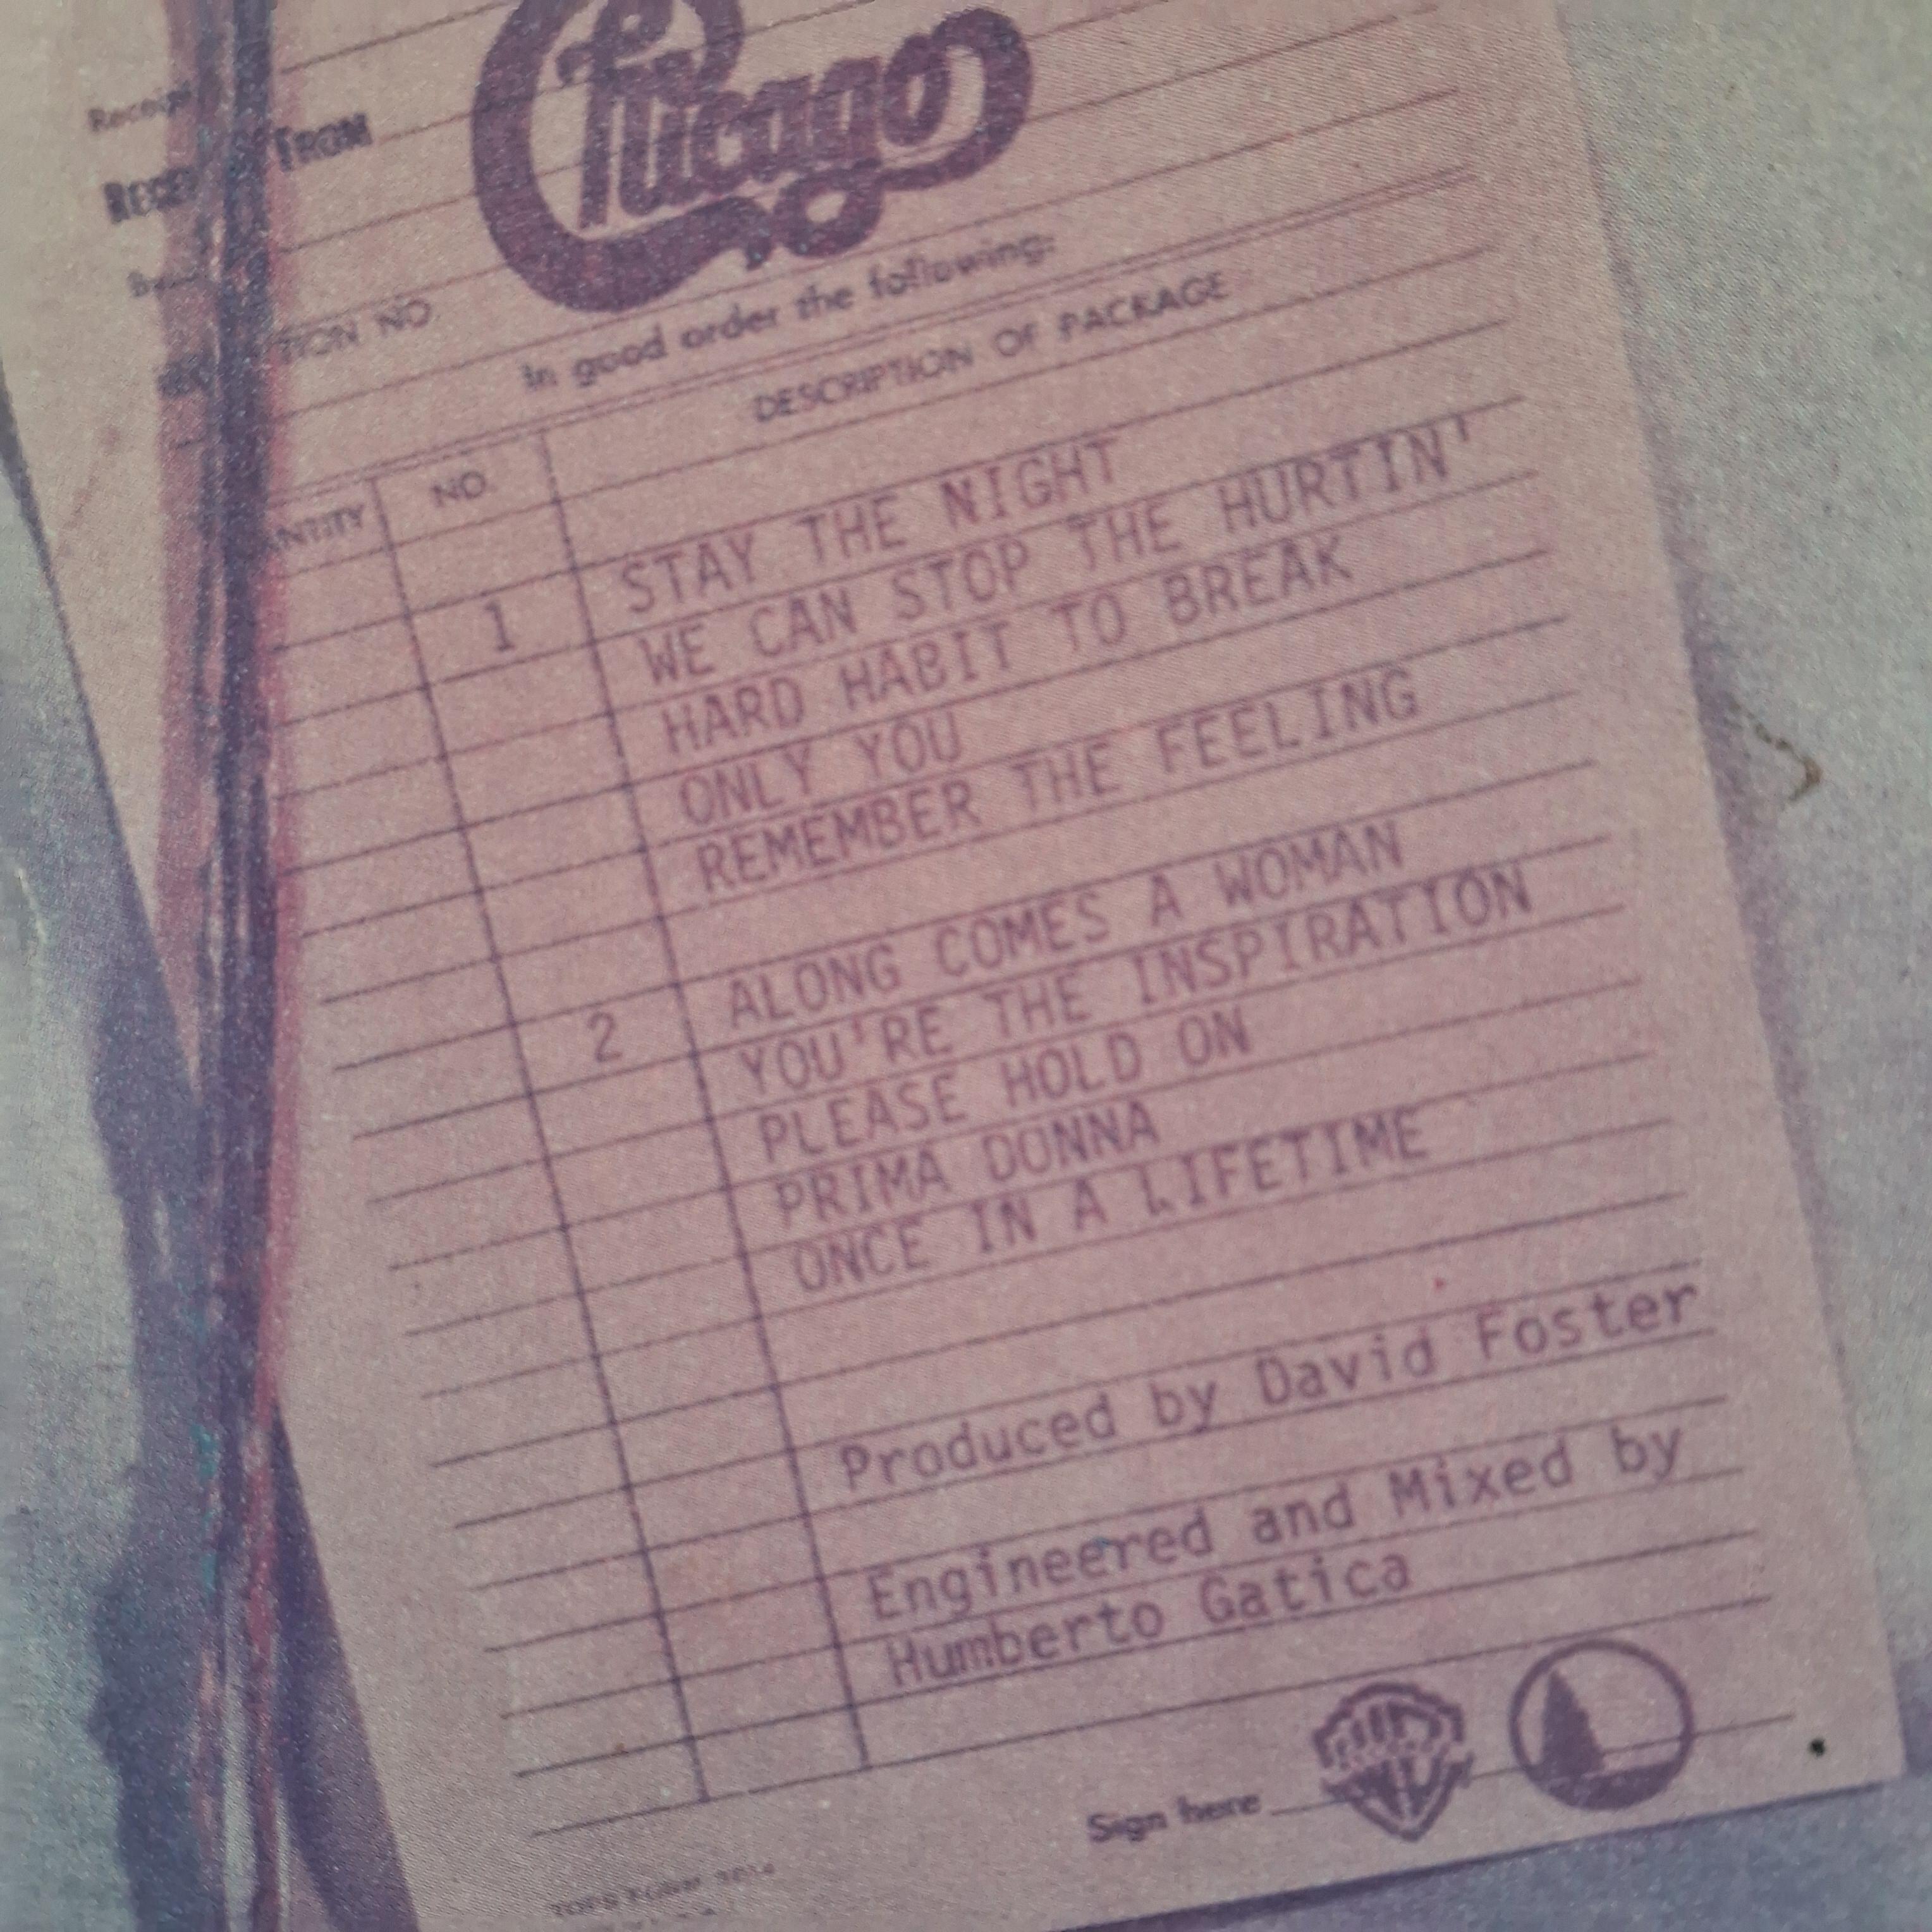 Chicago
FROM
In good order the following:
DESCRIPTION OF PACKAGE
NO.
1 STAY THE NIGHT
WE CAN STOP THE HURTIN'
HARD HABIT TO BREAK
ONLY YOU
REMEMBER THE FEELING
2 ALONG COMES A WOMAN
YOU'RE THE INSPIRATION
PLEASE HOLD ON
PRIMA DONNA
ONCE IN A LIFETIME
Produced by David Foster
Engineered and Mixed by
Humberto Gatica
Sign here